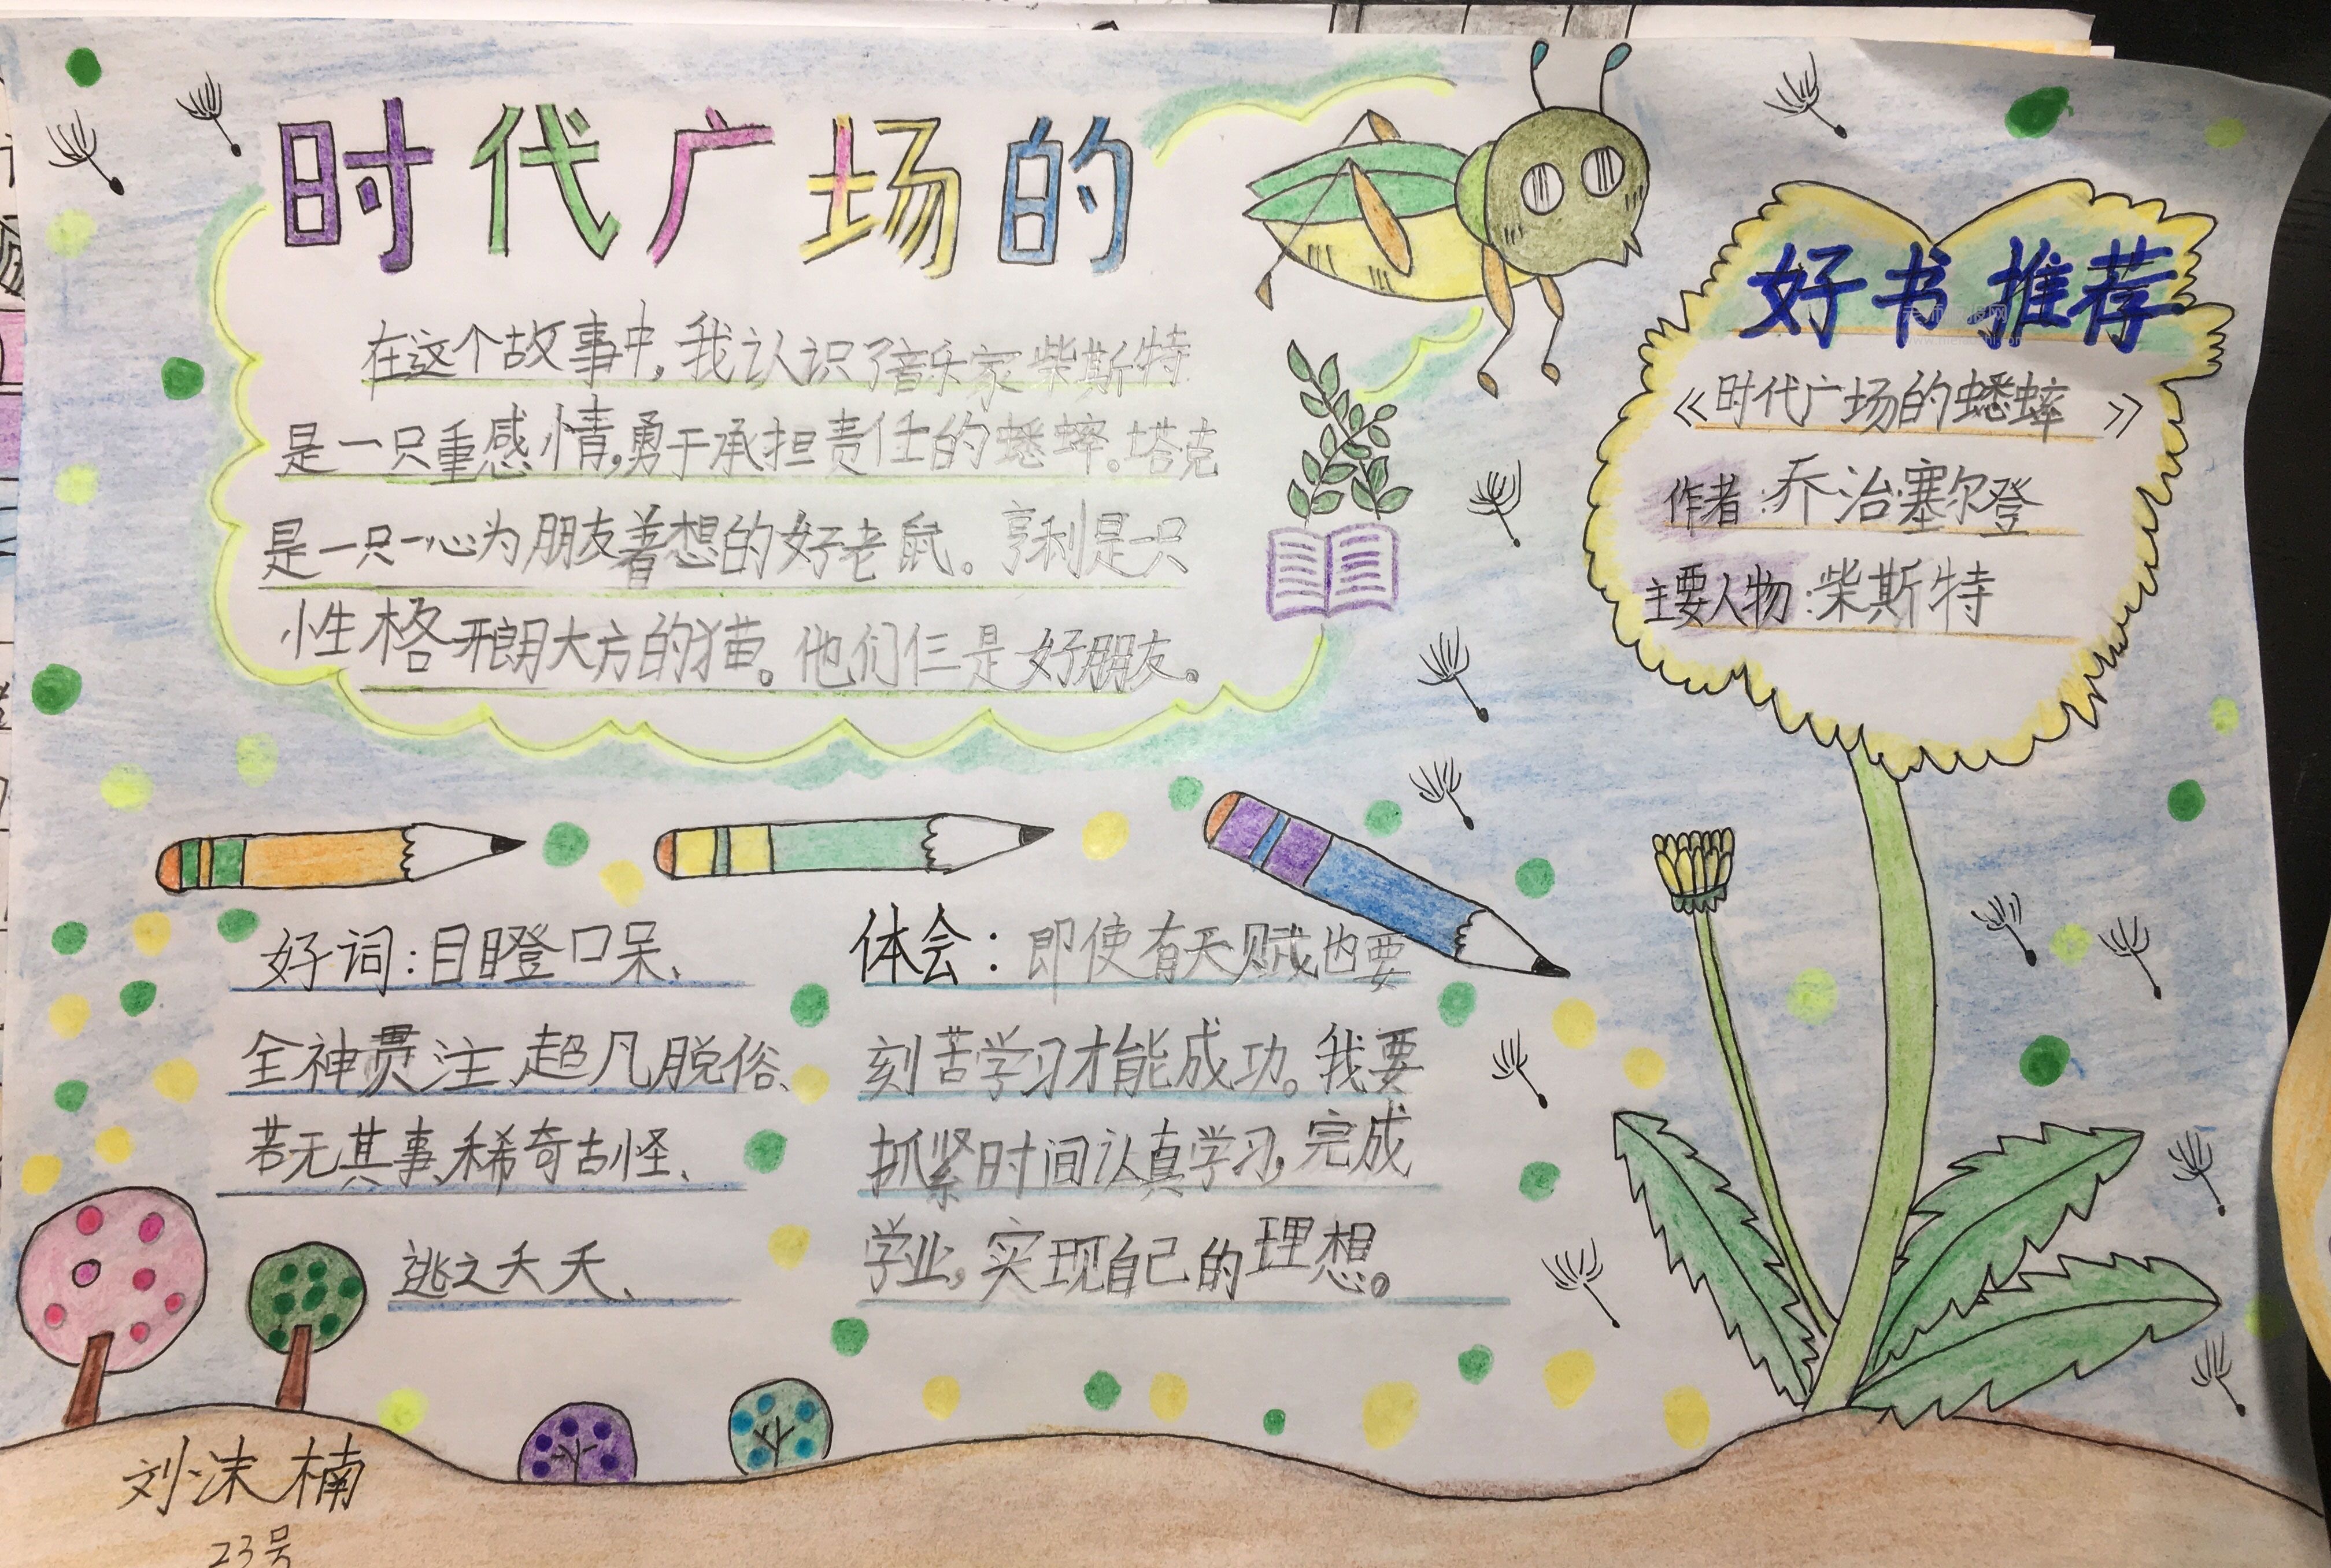 时代广场的
在这个故事中,我认识了音乐家柴斯特
是一只重感情,勇于承担责任的蟋蟀。塔克
是一只一心为朋友着想的好老鼠。亨利是一只
性格开朗大方的猫。他们仨是好朋友。
好书推荐
《时代广场的蟋蟀》
作者:乔治·塞尔登
主要人物:柴斯特
好词:目瞪口呆、
全神贯注、超凡脱俗、
若无其事、稀奇古怪、
逃之夭夭、
体会:即使有天赋也要
刻苦学习才能成功。我要
抓紧时间认真学习,完成
学业,实现自己的理想。
刘沫楠
23号